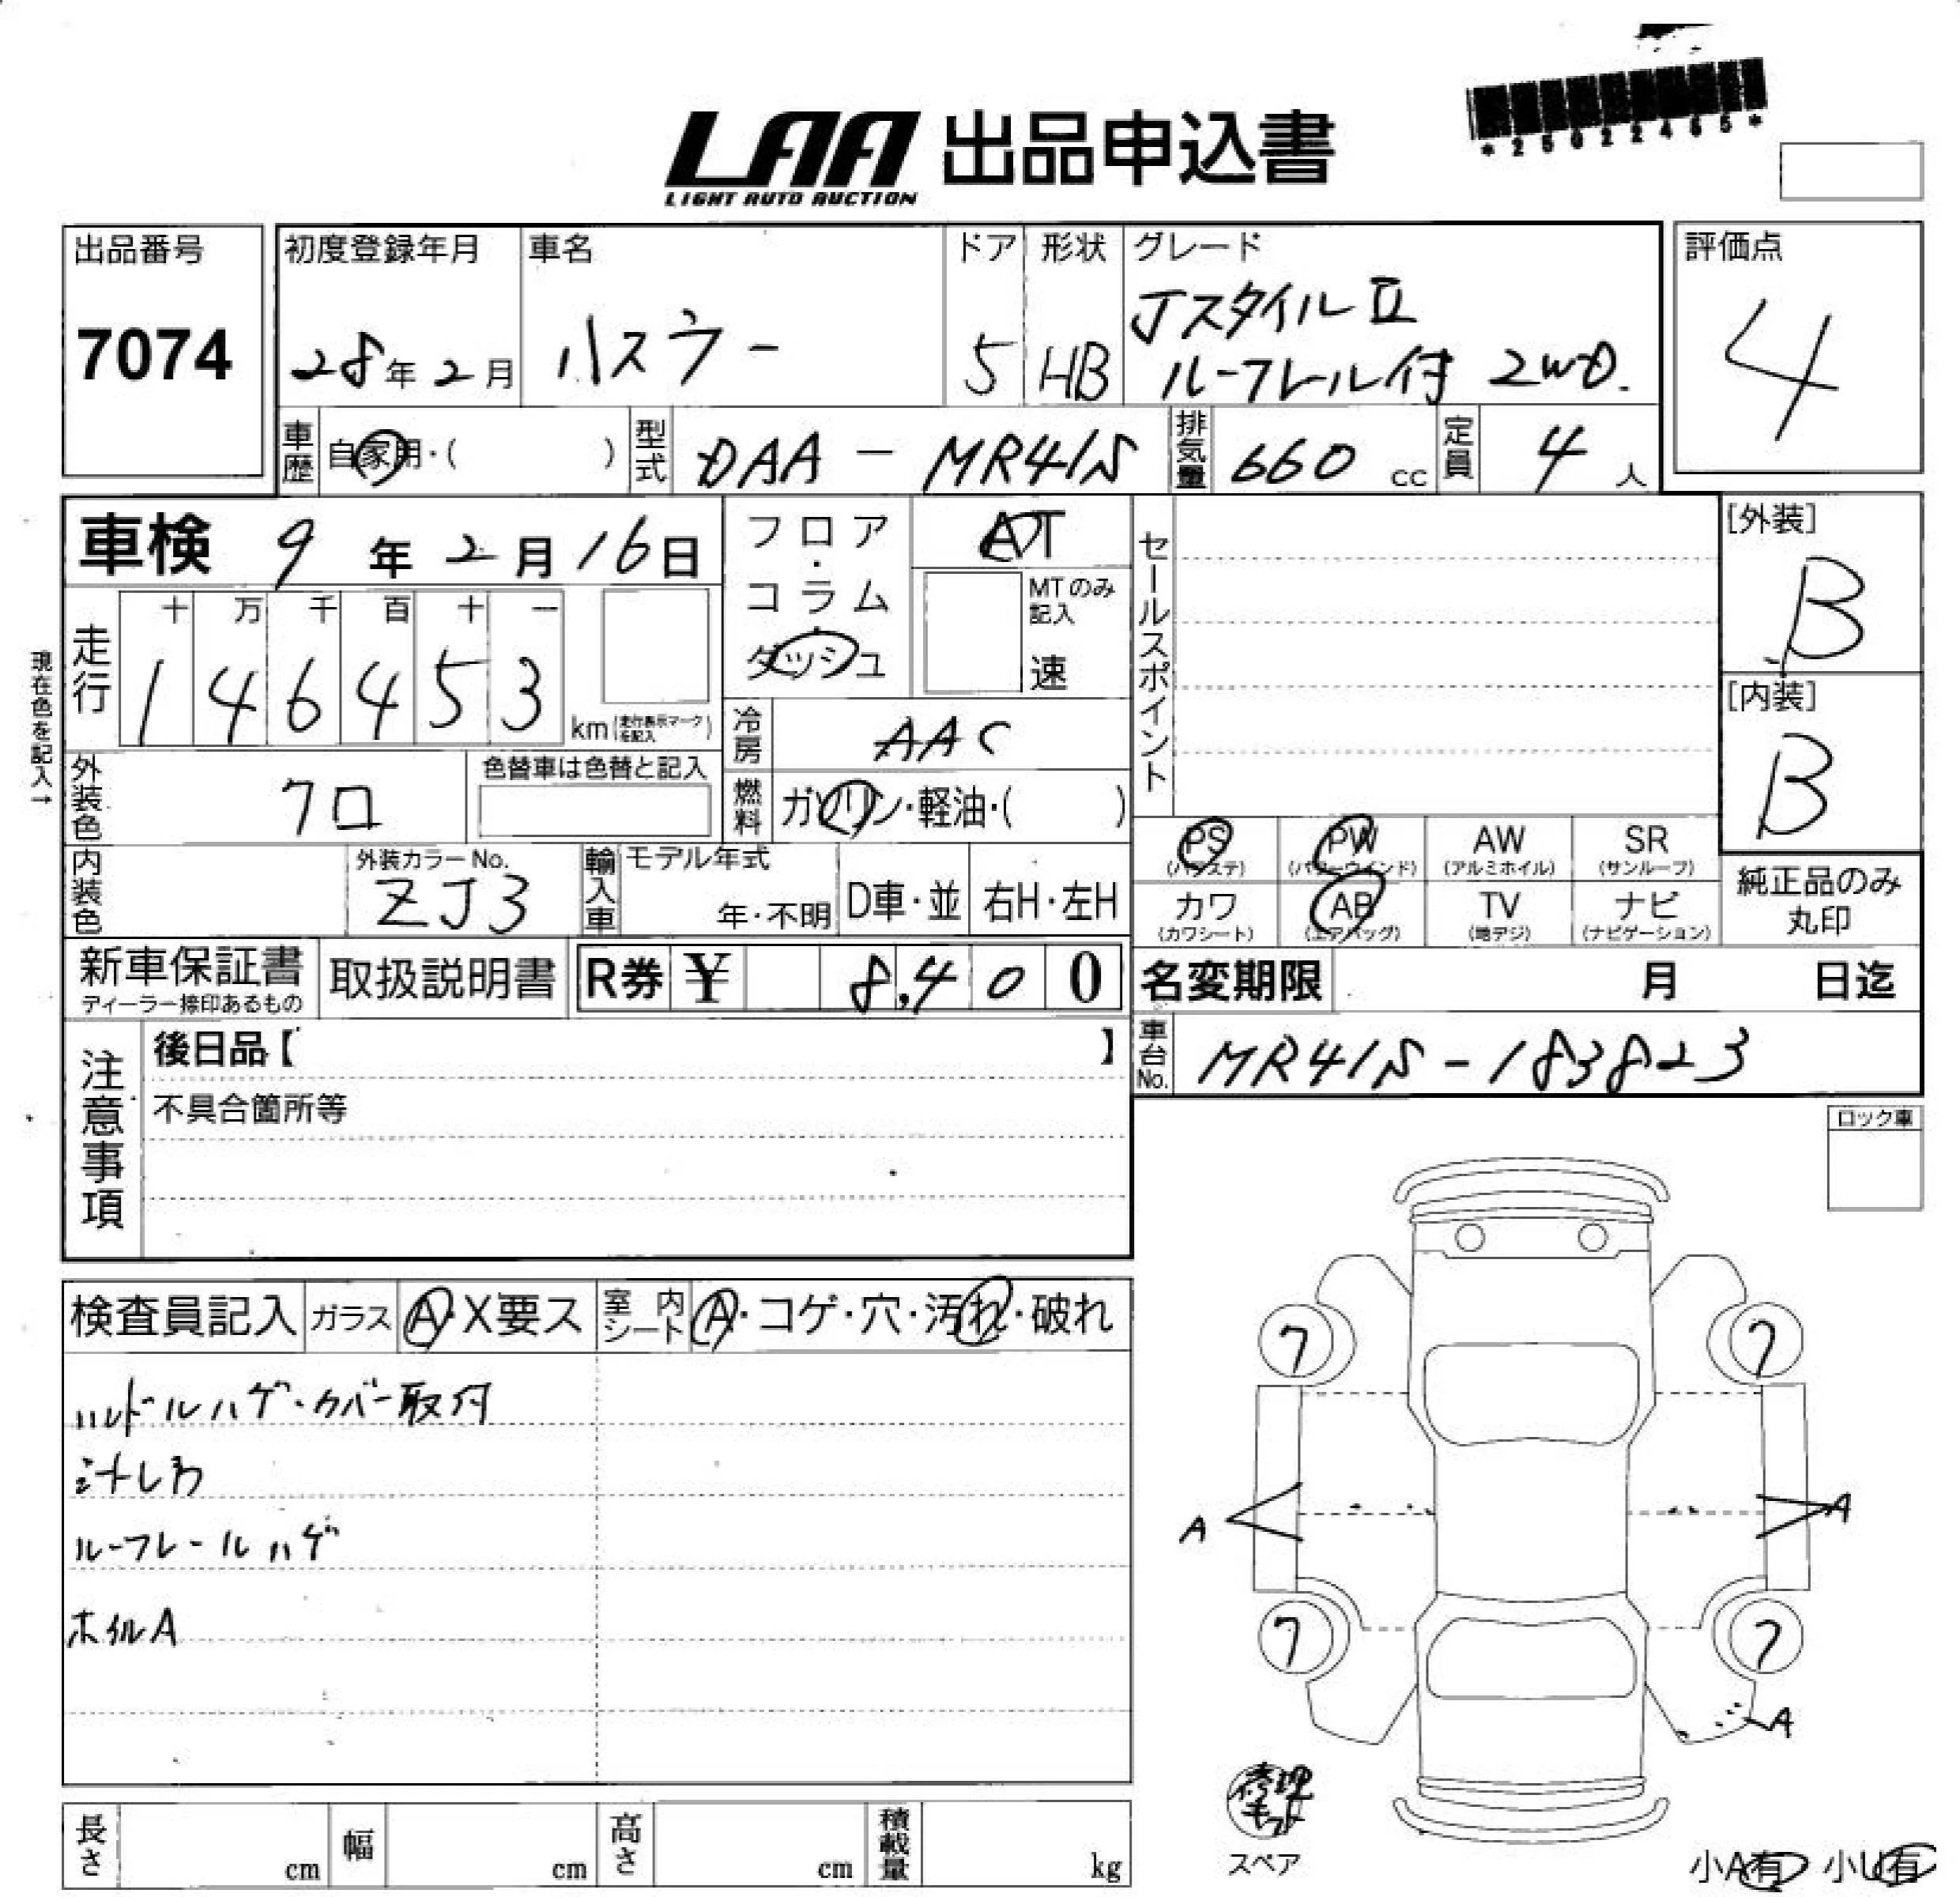 LAA 出品申込書
LIGHT AUTO AUCTION
*25022465*
出品番号
7074
初度登録年月
28年2月
車名
ハスラー
ドア
5
形状
HB
グレード
JスタイルⅡ
ルーフレール付 2WD.
評価点
4
車歴 自家用・( )
型式 DAA - MR41S
排気量 660 cc
定員 4 人
車検 9年2月16日
フロア・コラム・ダッシュ
AT
MTのみ記入
速
セールスポイント
[外装]
B
[内装]
B
現在色を記入→
走行
十 万 千 百 十 一
1 4 6 4 5 3
km (走行表示マークを記入)
冷房 AAC
外装色 クロ
色替車は色替と記入
燃料 ガソリン・軽油・( )
PS (パワステ)
PW (パワーウインド)
AW (アルミホイル)
SR (サンルーフ)
カワ (カワシート)
AB (エアバッグ)
TV (地デジ)
ナビ (ナビゲーション)
純正品のみ
丸印
内装色
外装カラーNo.
ZJ3
輸入車
モデル年式
年・不明
D車・並
右H・左H
新車保証書
ディーラー捺印あるもの
取扱説明書
R券 ¥ 8,400
名変期限 月 日迄
車台No. MR41S-183823
注意事項
後日品【 】
不具合箇所等
ロック車
検査員記入
ガラス A・X要ス
室内シート A・コゲ・穴・汚れ・破れ
ハンドルハゲ・カバー取付
ルーフレールハゲ
ホイルA
7
7
A
A
7
7
A
修理キット
スペア
小A有 小U有
長さ cm
幅 cm
高さ cm
積載量 kg